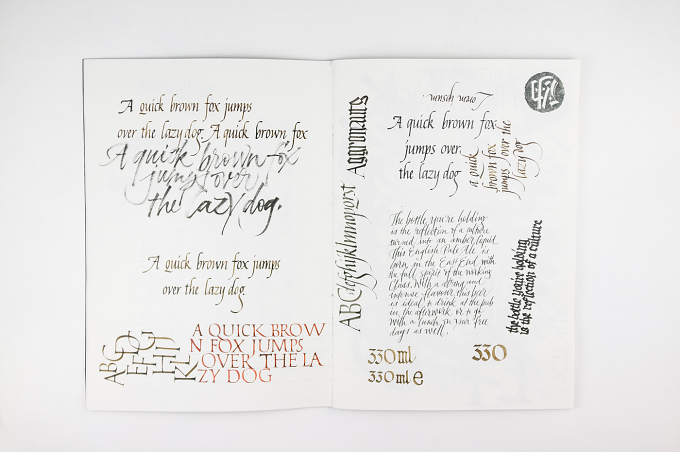 A quick brown fox jumps
over the lazy dog. A quick brown fox
A quick brown fox
jumps over
the lazy dog.
A quick brown fox jumps
over the lazy dog
ABC
DG
EFG
HIJ
KL
A QUICK BROW
N FOX JUMPS
OVER THE LA
ZY DOG
Aggronauts
ABCdefghijklmnopqrst
Lorem ipsum.
A quick brown fox
jumps over
the lazy dog
a quick
brown fox
jumps over the
lazy dog
The bottle you're holding
is the reflection of a culture
turned into an amber liquid.
This English Pale Ale is
born in the East End with
the full spirit of the working
class. With a strong and
intense flavour this beer
is ideal to drink at the pub
in the afterwork or to go
with a lunch in your free
days as well.
the bottle you're holding
is the reflection of a culture
330 ml
330 ml e
330